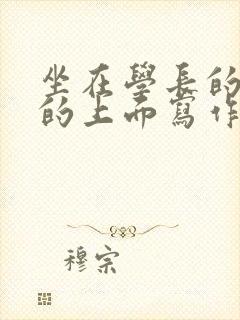 坐在學長的
的上面寫作
穆宗